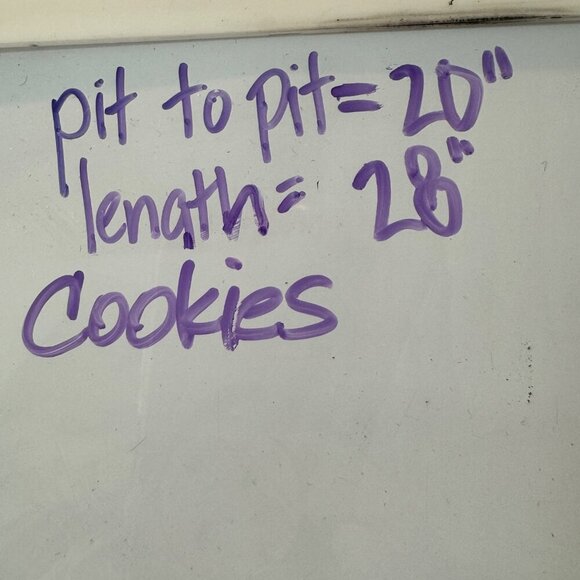 pit to pit= 20"
length= 28"
Cookies